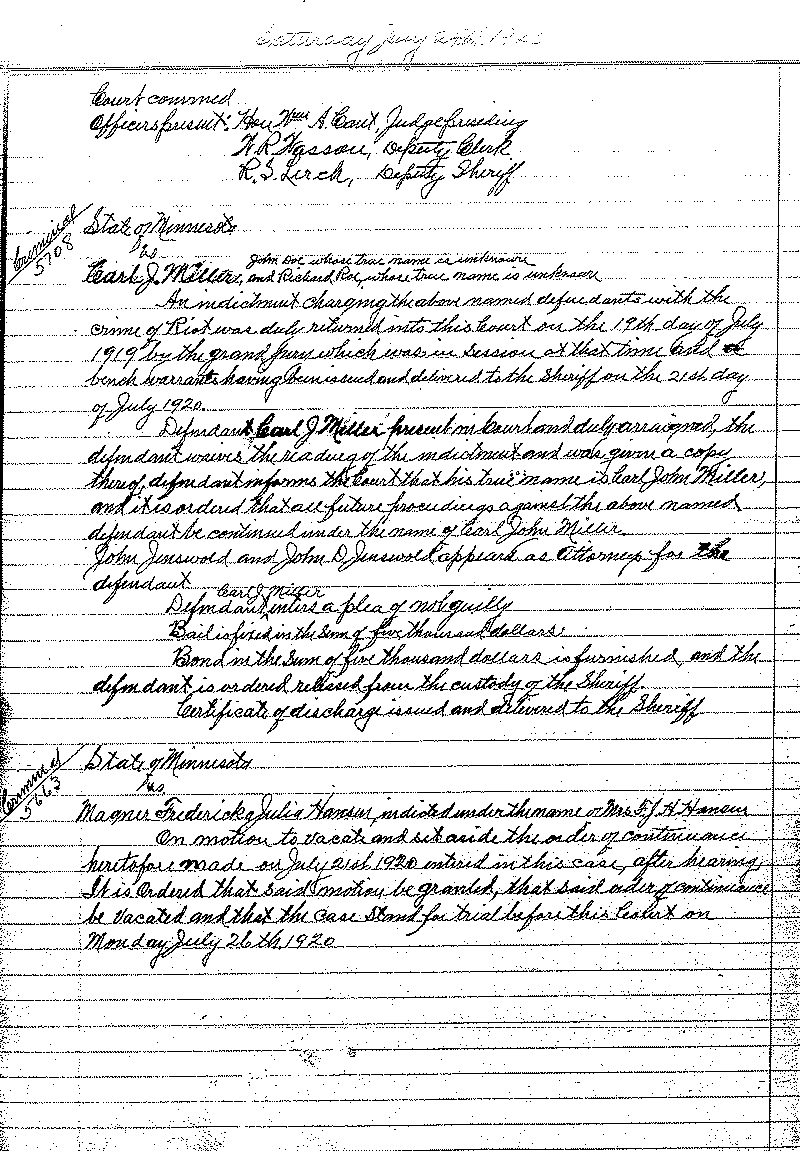 Saturday July 24th 1920
Court convened
Officers present: Hon Wm A. Cant, Judge Presiding
H R Wasson, Deputy Clerk
R. S. Lerch, Deputy Sheriff
Criminal
5708
State of Minnesota
vs
John Doe whose true name is unknown
Carl J. Miller, and Richard Roe, whose true name is unknown
An indictment charging the above named defendants with the
crime of Riot was duly returned into this Court on the 19th day of July
1919 by the grand jury which was in Session at that time and
bench warrants having been issued and delivered to the Sheriff on the 21st day
of July 1920.
Defendant Carl J. Miller present in Court and duly arraigned, the
defendant waives the reading of the indictment and was given a copy
thereof, defendant informs the Court that his true name is Carl John Miller,
and it is ordered that all future proceedings against the above named
defendant be continued under the name of Carl John Miller.
John Jenswold and John D Jenswold appears as Attorneys for the
defendant
Carl J. Miller
Defendant enters a plea of not guilty
Bail is fixed in the Sum of five thousand dollars.
Bond in the Sum of five thousand dollars is furnished, and the
defendant is ordered released from the custody of the Sheriff.
Certificate of discharge issued and delivered to the Sheriff
Criminal
5663
State of Minnesota
vs
Magner Fredericq Julia Hansen, indicted under the name of Mrs F. J. H. Hansen
On motion to vacate and set aside the order of continuance
heretofore made on July 21st 1920 entered in this case, after hearing,
It is Ordered that said motion be granted, that said order of continuance
be Vacated and that the case Stand for trial before this Court on
Monday July 26th, 1920